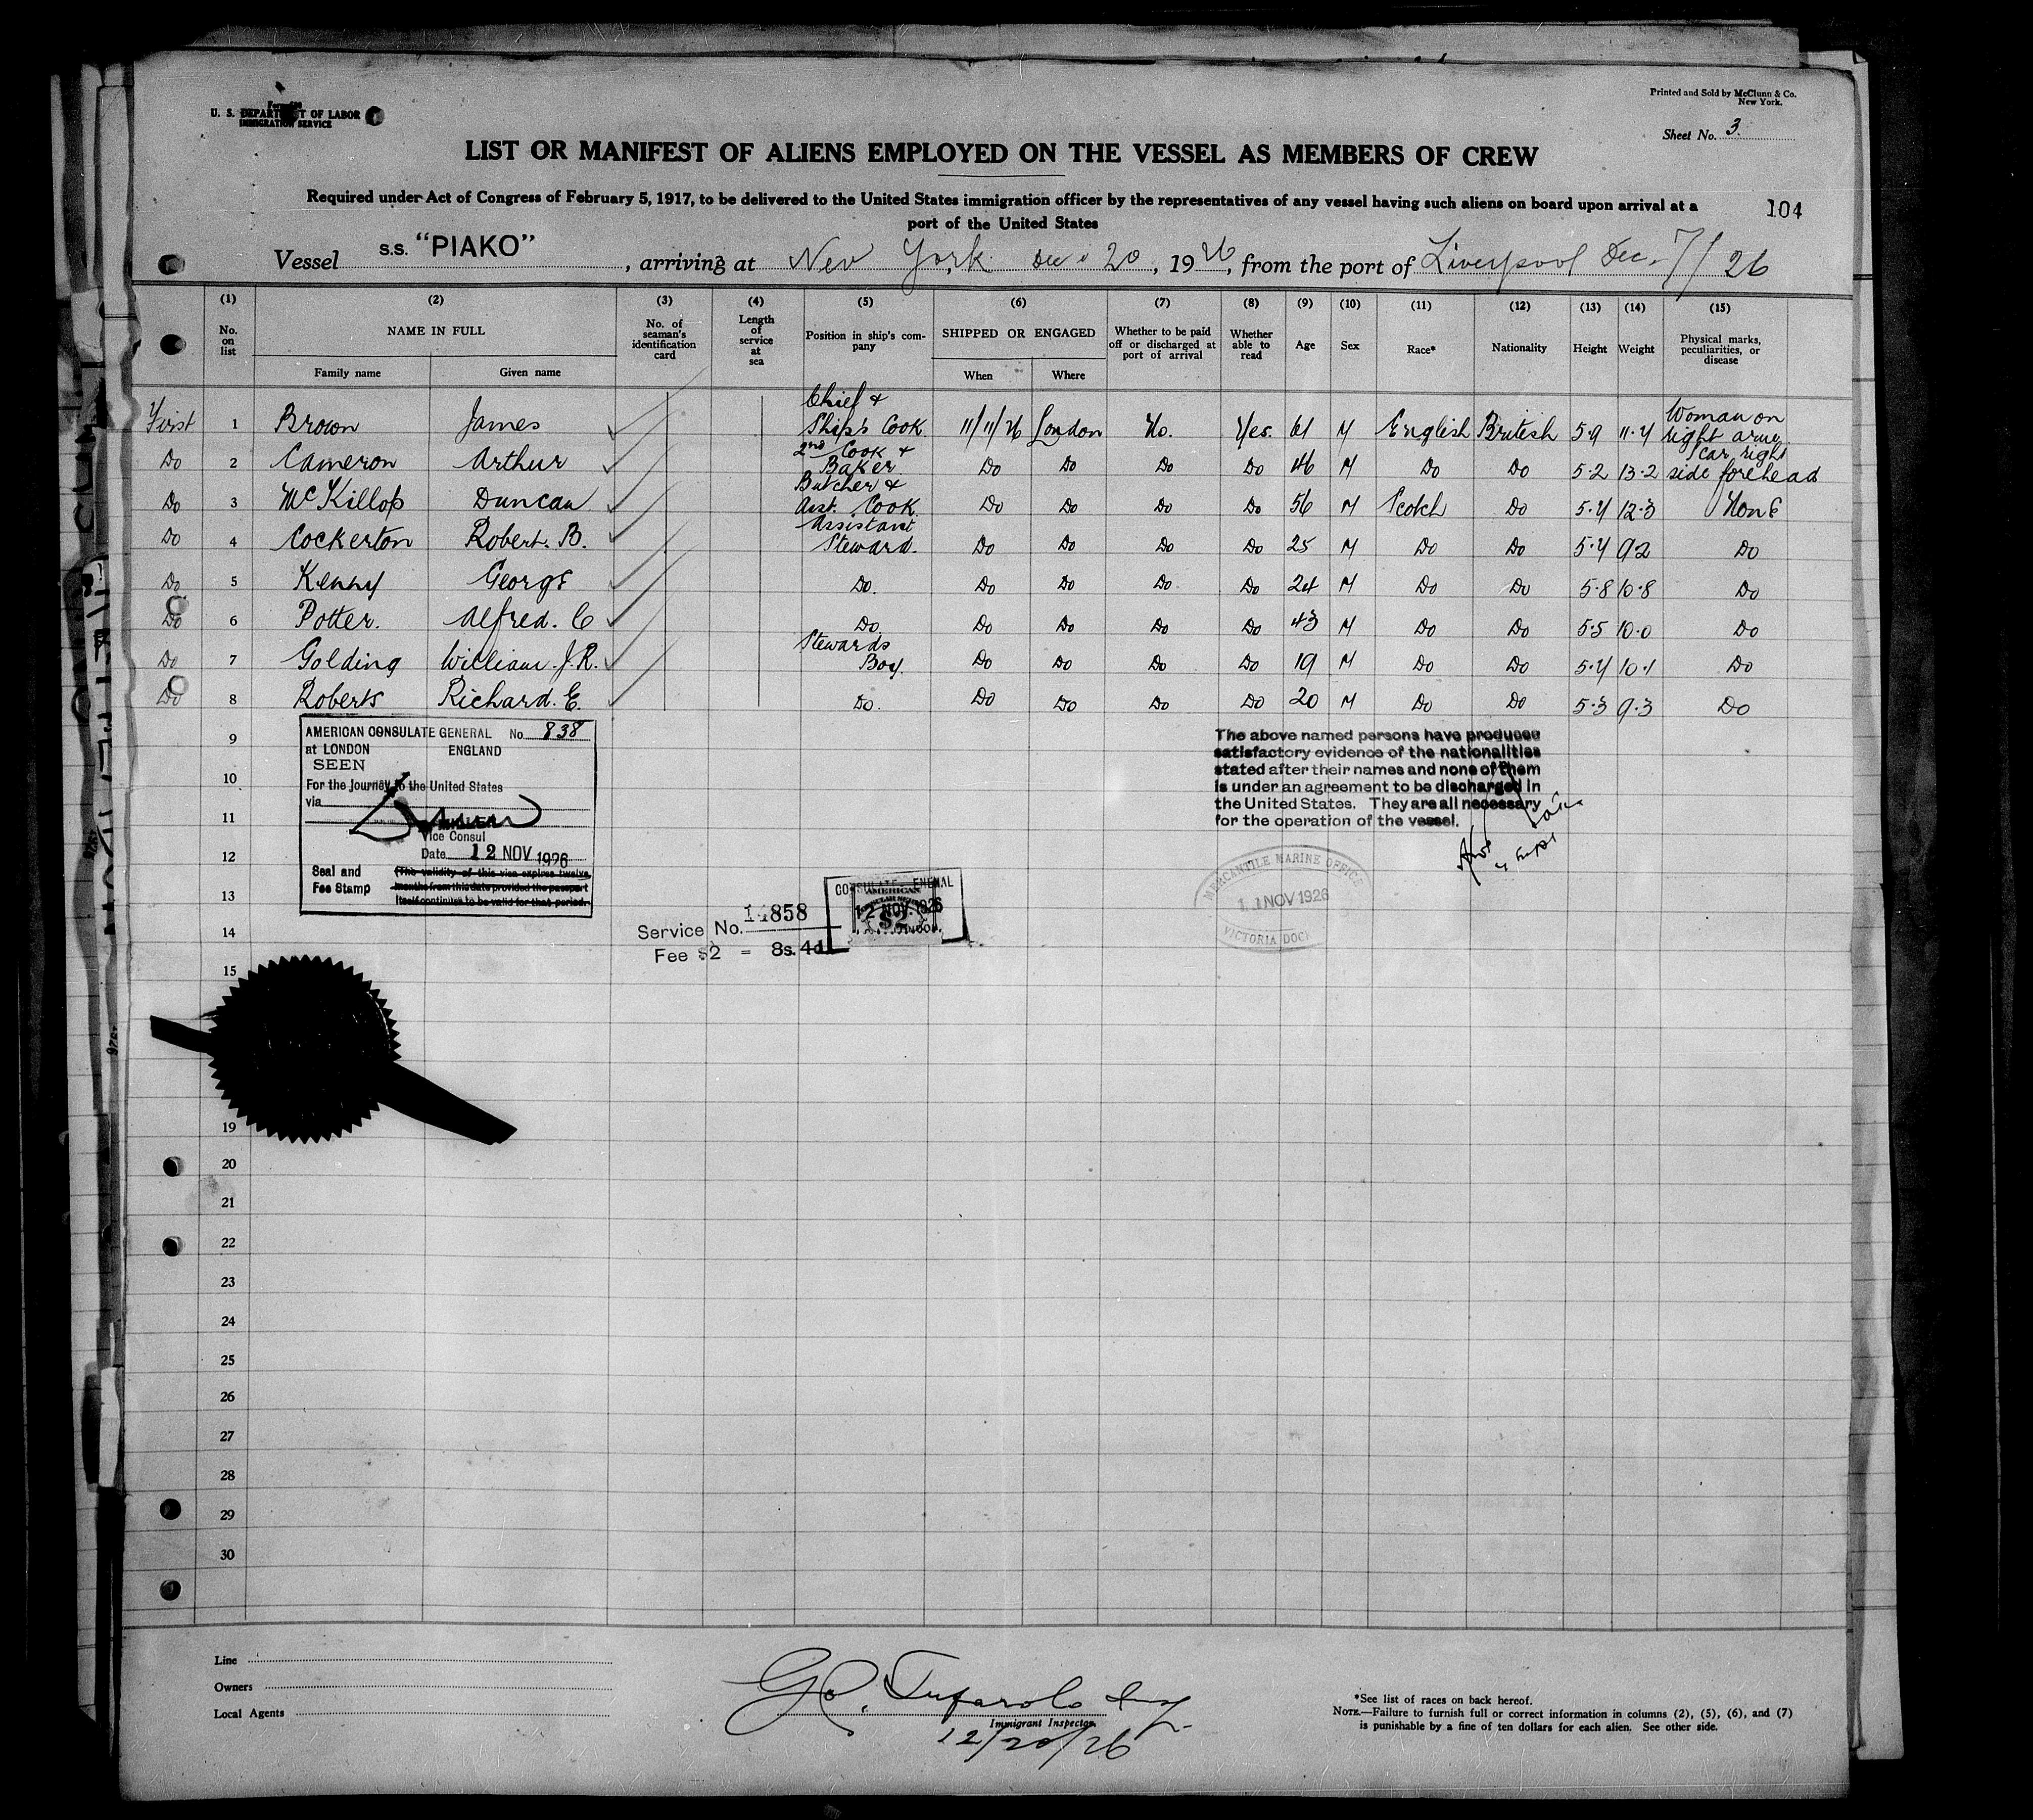 Form 689
U. S. DEPARTMENT OF LABOR
IMMIGRATION SERVICE
Printed and Sold by McClunn & Co.
New York.
Sheet No. 3.
LIST OR MANIFEST OF ALIENS EMPLOYED ON THE VESSEL AS MEMBERS OF CREW
Required under Act of Congress of February 5, 1917, to be delivered to the United States immigration officer by the representatives of any vessel having such aliens on board upon arrival at a
port of the United States
104
Vessel s.s. "PIAKO", arriving at New York Dec. 20, 1926, from the port of Liverpool Dec. 7/26
(1) (2) (3) (4) (5) (6) (7) (8) (9) (10) (11) (12) (13) (14) (15)
No. on list NAME IN FULL No. of seaman's identification card Length of service at sea Position in ship's company SHIPPED OR ENGAGED Whether to be paid off or discharged at port of arrival Whether able to read Age Sex Race* Nationality Height Weight Physical marks, peculiarities, or disease
Family name Given name When Where
First 1 Brown James Chief & Ships Cook. 11/11/26 London No. Yes. 61 M English British 5.9 11.4 Woman on right arm.
Do 2 Cameron Arthur 2nd Cook & Baker. Do Do Do Do 46 M Do Do 5.2 13.2 Scar right side forehead
Do 3 McKillop Duncan Butcher & Asst. Cook Do Do Do Do 56 M Scotch Do 5.4 12.3 None
Do 4 Cockerton Robert. B. Assistant Steward. Do Do Do Do 25 M Do Do 5.4 9.2 Do
Do 5 Kenny George Do. Do Do Do Do 24 M Do Do 5.8 10.8 Do
Do 6 Potter. Alfred. C Do Do Do Do Do 43 M Do Do 5.5 10.0 Do
Do 7 Golding William. J.R. Stewards Boy. Do Do Do Do 19 M Do Do 5.4 10.1 Do
Do 8 Roberts Richard. E. Do. Do Do Do Do 20 M Do Do 5.3 9.3 Do
9
10
11
12
13
14
15
19
20
21
22
23
24
25
26
27
28
29
30
AMERICAN CONSULATE GENERAL No. 838
at LONDON ENGLAND
SEEN
For the Journey to the United States
via
Vice Consul
Date 12 NOV 1926
Seal and Fee Stamp
(The validity of this visa expires twelve
months from this date provided the passport
itself continues to be valid for that period.
Service No. 14858
Fee $2 = 8s. 4d.
AMERICAN
12 NOV. 1926
$2
The above named persons have produced
satisfactory evidence of the nationalities
stated after their names and none of them
is under an agreement to be discharged in
the United States. They are all necessary
for the operation of the vessel.
MERCANTILE MARINE OFFICE
11 NOV 1926
VICTORIA DOCK
Line
Owners
Local Agents
Immigrant Inspector.
12/20/26
*See list of races on back hereof.
NOTE.—Failure to furnish full or correct information in columns (2), (5), (6), and (7)
is punishable by a fine of ten dollars for each alien. See other side.